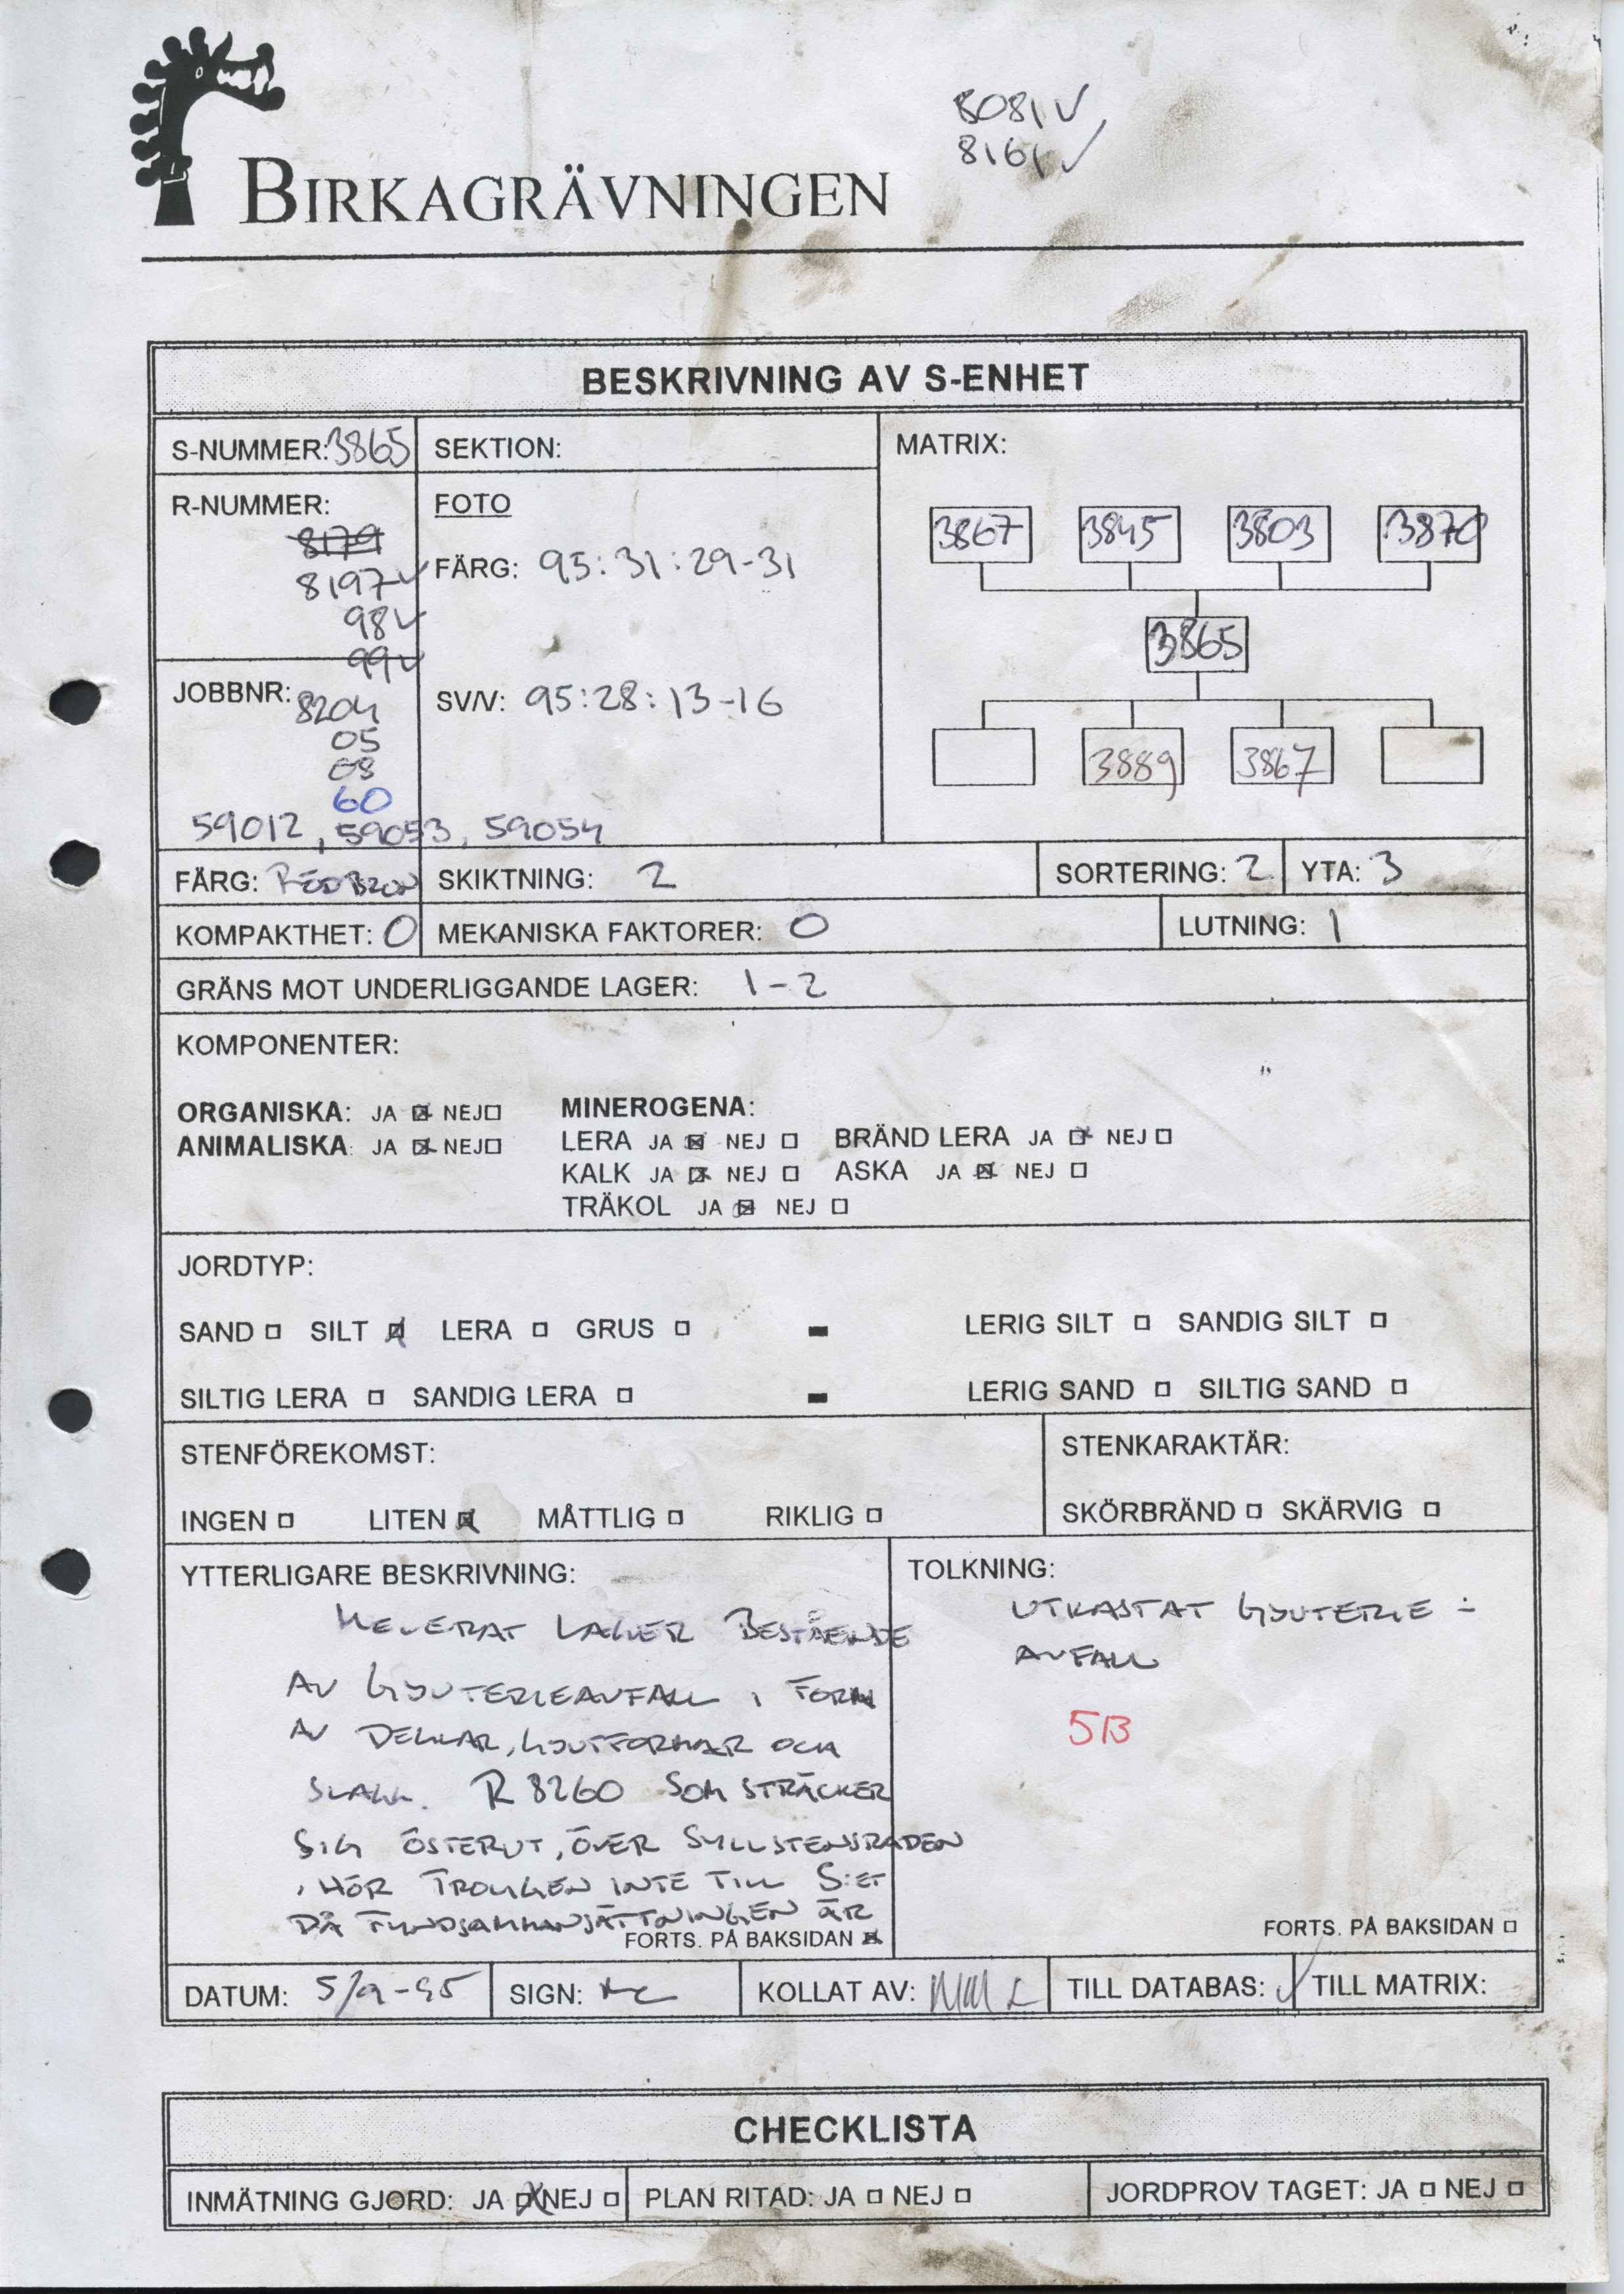 8081 ✓
8161 ✓
BIRKAGRÄVNINGEN
BESKRIVNING AV S-ENHET
S-NUMMER: 3865
SEKTION:
MATRIX:
R-NUMMER:
8179
8197 ✓
98 ✓
99 ✓
FOTO
FÄRG: 95:31:29-31
3867 3845 3803 3870
3865
3889 3867
JOBBNR:
8204
05
08
60
59012, 59053, 59054
SV/V: 95:28:13-16
FÄRG: RÖDBRUN SKIKTNING: 2 SORTERING: 2 YTA: 3
KOMPAKTHET: 0 MEKANISKA FAKTORER: 0 LUTNING: 1
GRÄNS MOT UNDERLIGGANDE LAGER: 1-2
KOMPONENTER:
ORGANISKA: JA ☒ NEJ ☐ MINEROGENA:
ANIMALISKA: JA ☒ NEJ ☐ LERA JA ☒ NEJ ☐ BRÄND LERA JA ☒ NEJ ☐
KALK JA ☒ NEJ ☐ ASKA JA ☒ NEJ ☐
TRÄKOL JA ☒ NEJ ☐
JORDTYP:
SAND ☐ SILT ☒ LERA ☐ GRUS ☐ - LERIG SILT ☐ SANDIG SILT ☐
SILTIG LERA ☐ SANDIG LERA ☐ - LERIG SAND ☐ SILTIG SAND ☐
STENFÖREKOMST:
INGEN ☐ LITEN ☒ MÅTTLIG ☐ RIKLIG ☐
STENKARAKTÄR:
SKÖRBRÄND ☐ SKÄRVIG ☐
YTTERLIGARE BESKRIVNING:
LAGER BESTÅENDE
AV GJUTERIEAVFALL I FORM
AV DEGLAR, GJUTFORMAR OCH
SLAGG. R 8260 SOM STRÄCKER
SIG ÖSTERUT, ÖVER SYLLSTENSRADEN
, HÖR TROLIGEN INTE TILL S:ET
DÅ FYNDSAMMANSÄTTNINGEN ÄR
FORTS. PÅ BAKSIDAN ☒
TOLKNING:
UTKASTAT GJUTERIE-
AVFALL
5B
FORTS. PÅ BAKSIDAN ☐
DATUM: 5/9-95 SIGN: KOLLAT AV: TILL DATABAS: ✓ TILL MATRIX:
CHECKLISTA
INMÄTNING GJORD: JA ☒ NEJ ☐ PLAN RITAD: JA ☐ NEJ ☐ JORDPROV TAGET: JA ☐ NEJ ☐